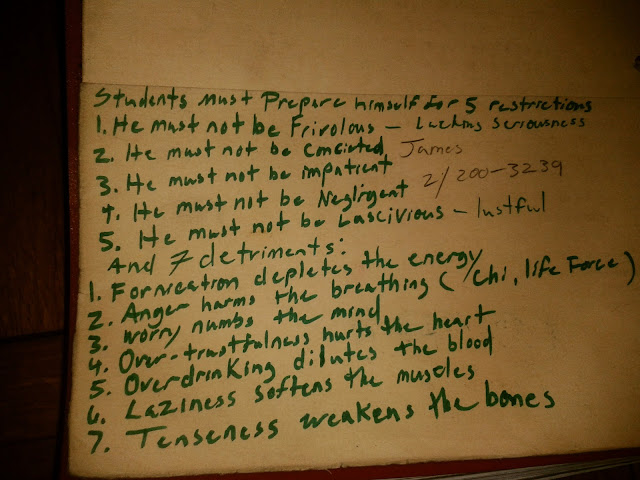 Students must Prepare himself for 5 restrictions
1. He must not be Frivolous – Lacking Seriousness
2. He must not be Concieted James
3. He must not be impatient
4. He must not be Negligent 2/200-3239
5. He must not be Lascivious – lustful
And 7 detriments:
1. Fornication depletes the energy
2. Anger harms the breathing (Chi, life Force)
3. Worry numbs the mind
4. Over-trustfulness hurts the heart
5. Overdrinking dilutes the blood
6. Laziness softens the muscles
7. Tenseness weakens the bones